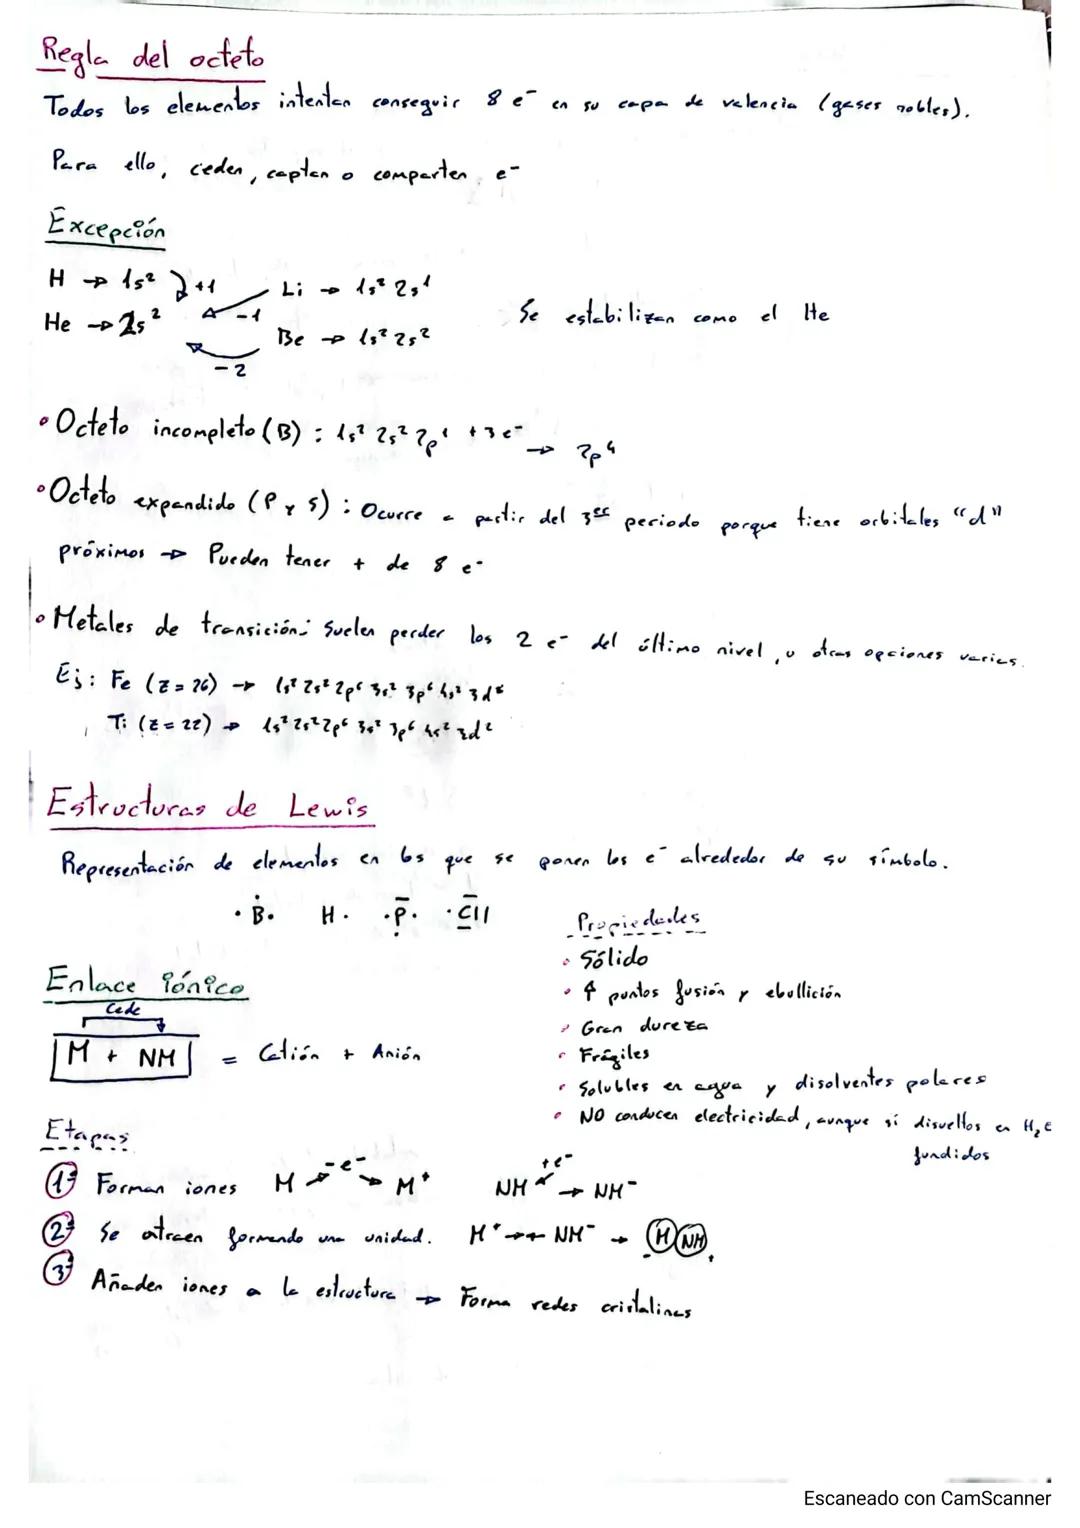 Regla del octeto
Todos los elementos intentan conseguir 8 e⁻ en su capa de valencia (gases nobles).
Para ello, ceden, captan o comparten e⁻
Excepción
H → 1s² +1 Li → 1s² 2s¹
He → 2s² -1 Se estabilizan como el He
Be → 1s² 2s²
-2
• Octeto incompleto (B) : 1s² 2s² 2p¹ +3e⁻ → 2p⁴
• Octeto expandido (P y S) : Ocurre a partir del 3er periodo porque tiene orbitales "d"
próximos → Pueden tener + de 8 e⁻
• Metales de transición: Suelen perder los 2 e⁻ del último nivel, u otras opciones varias.
Ej: Fe (Z = 26) → 1s² 2s² 2p⁶ 3s² 3p⁶ 4s² 3d⁶
Ti (Z = 22) → 1s² 2s² 2p⁶ 3s² 3p⁶ 4s² 3d²
Estructuras de Lewis
Representación de elementos en los que se ponen los e⁻ alrededor de su símbolo.
B H P Cl
Propiedades
• Sólido
• ↑ puntos fusión y ebullición
• Gran dureza
• Frágiles
• Solubles en agua y disolventes polares
• NO conducen electricidad, aunque sí disueltos en H₂
fundidos
Enlace iónico
Cede
M + NM = Catión + Anión
Etapas
1ª Forman iones M -e⁻ → M⁺ NM +e⁻ → NM⁻
2ª Se atraen formando una unidad. M⁺ →← NM⁻ → M NM
3ª Añaden iones a la estructura → Forma redes cristalinas
Escaneado con CamScanner